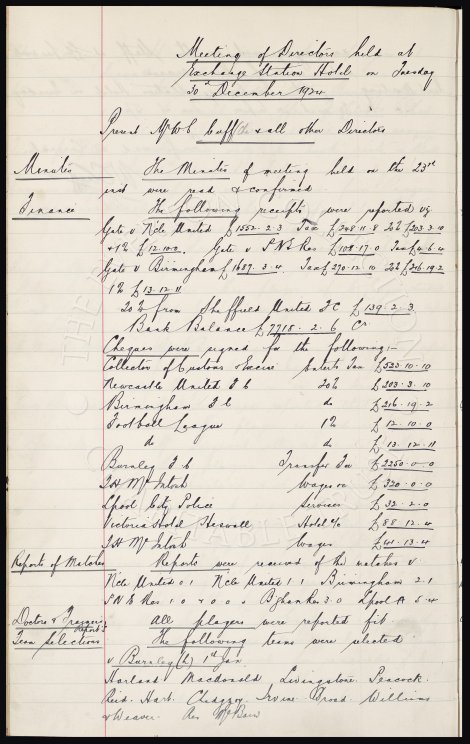 Meeting of Directors held at
Exchange Station Hotel on Tuesday
30th December 1924
Present Mr W.C. Cuff & all other Directors
Minutes The Minutes of meeting held on the 23rd
inst were read & confirmed.
Finance The following receipts were reported viz
Gate v Ncle United £1552.2.3 Tax £248.11.8 20% £203.3.10
& 1% £12.10.0 Gate v S.N.E Res £108.17.0 Tax £4.6.4
Gate v Birmingham £1687.3.4 Tax £270.12.10 20% £216.19.2
1% £13.12.11
20% from Sheffield United F.C £139.2.3.
Bank Balance £7718.2.6 Cr.
Cheques were signed for the following:-
Collector of Customs & Excise Enterts Tax £523.10.10
Newcastle United F.C 20% £203.3.10
Birmingham F.C do £216.19.2
Football League 1% £12.10.0
do do £13.12.11
Burnley F.C Transfer Fee £2250.0.0
T.H. McIntosh Wages &c £320.0.0
Lpool City Police Services £32.2.0
Victoria Hotel Heswall Hotel a/c £88.12.4
T.H. McIntosh Wages £41.13.4
Reports of Matches Reports were received of the matches v.
Ncle United 0.1 Ncle United 1.1 Birmingham 2.1
S.N.E Res 1.0 & 0.0 Bham Res 3.0 Lpool A 5.4
Doctors & Trainers Reports All players were reported fit.
Team Selections The following teams were selected
v Burnley (h) 1st Jan.
Harland Macdonald Livingstone Peacock.
Reid. Hart. Chedgzoy. Irvine. Broad. Williams
& Weaver. Res McBain